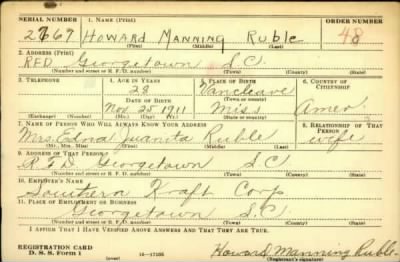 SERIAL NUMBER 1. NAME (Print) ORDER NUMBER
2767 Howard Manning Ruble 48
(First) (Middle) (Last)
2. ADDRESS (Print)
RFD Georgetown S.C.
(Number and street or R. F. D. number) (Town) (County) (State)
3. TELEPHONE 4. AGE IN YEARS 5. PLACE OF BIRTH 6. COUNTRY OF CITIZENSHIP
28 Vancleave
DATE OF BIRTH (Town or county)
Nov 25 1911 Miss Amer.
(Exchange) (Number) (Mo.) (Day) (Yr.) (State or country)
7. NAME OF PERSON WHO WILL ALWAYS KNOW YOUR ADDRESS 8. RELATIONSHIP OF THAT PERSON
Mrs. Edna Juanita Ruble wife
(Mr., Mrs., Miss) (First) (Middle) (Last)
9. ADDRESS OF THAT PERSON
RFD Georgetown S C
(Number and street or R. F. D. number) (Town) (County) (State)
10. EMPLOYER'S NAME
Southern Kraft Corp
11. PLACE OF EMPLOYMENT OR BUSINESS
Georgetown S.C
(Number and street or R. F. D. number) (Town) (County) (State)
I AFFIRM THAT I HAVE VERIFIED ABOVE ANSWERS AND THAT THEY ARE TRUE.
REGISTRATION CARD
D. S. S. Form 1 16—17105 Howard Manning Ruble
(Registrant's signature)